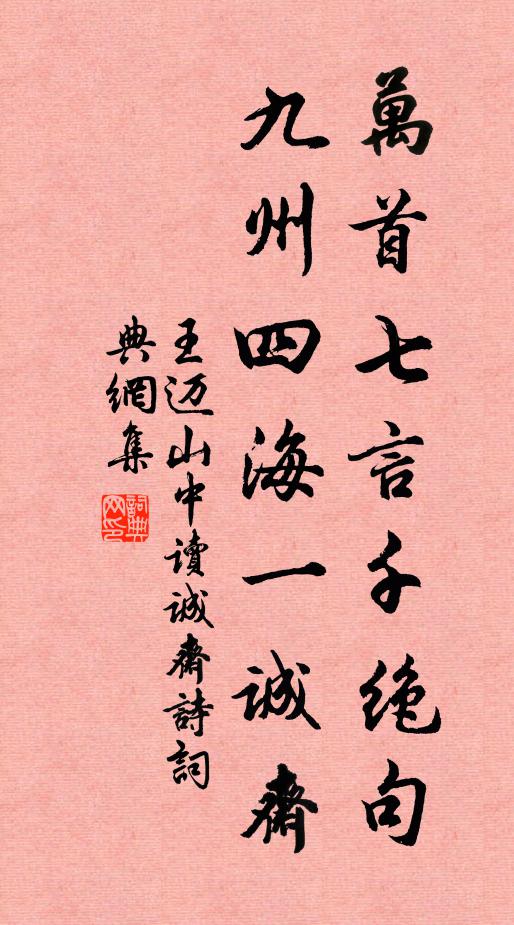 萬首七言千絕句
九州四海一誠齋
王迈山中讀誠齋詩詞
典網集
詞典
网印